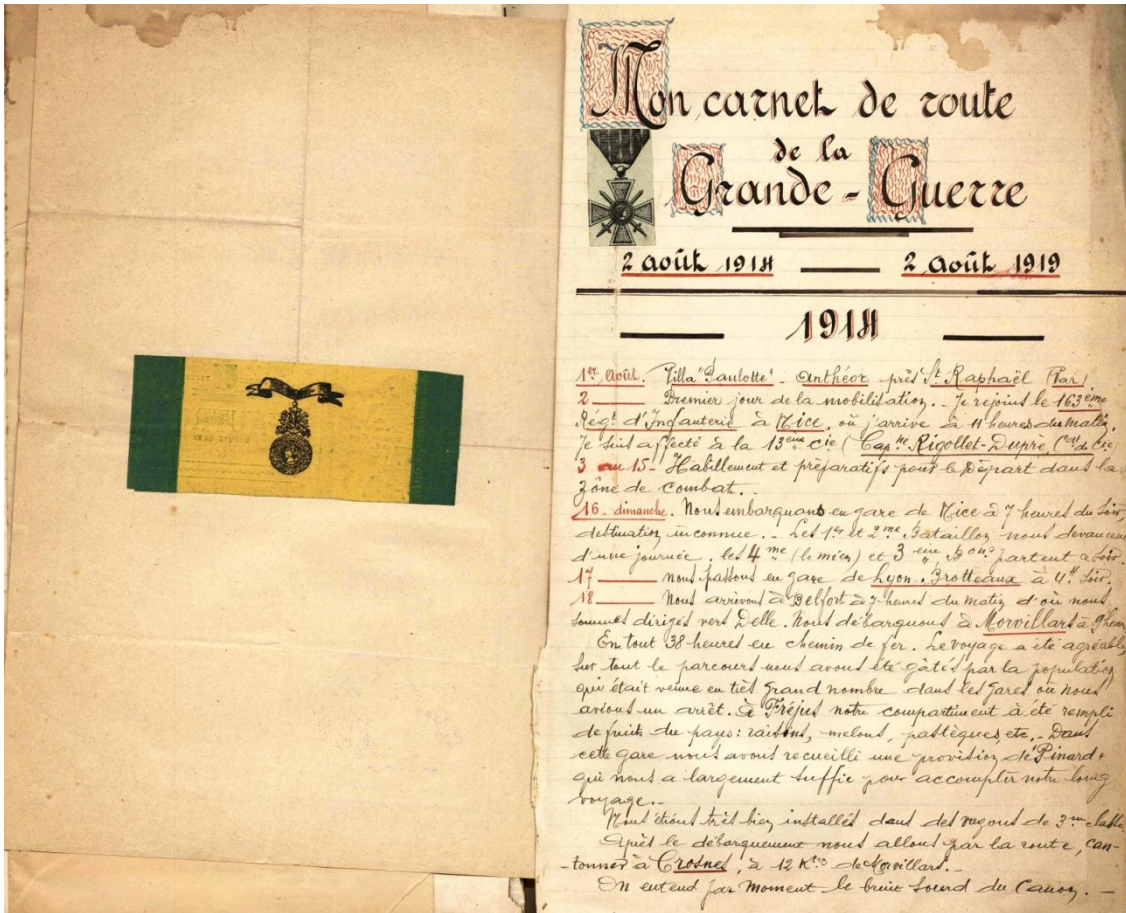 Mon carnet de route
de la
Grande-Guerre
2 août 1914 — 2 Août 1919
1914
1er Août. Villa "Paulotte" - Anthéor près St Raphaël (Var)
2 — Premier jour de la mobilisation. - Je rejoins le 163ème
Régt d'Infanterie à Nice, où j'arrive à 11 heures du matin.
Je suis affecté à la 13ème Cie (Capne Rigollet-Dupré, Ct de Cie
3 au 15 - Habillement et préparatifs pour le Départ dans la
zône de combat. -
16 - dimanche. Nous embarquons en gare de Nice à 7 heures du soir,
destination inconnue. - Les 1er et 2me Bataillon nous devancent
d'une journée. les 4me (le mien) et 3ème Bons partent ce soir.
17 — Nous passons en gare de Lyon-Brotteaux à 4H soir.
18 — Nous arrivons à Belfort à 7 heures du matin d'où nous
sommes dirigés vers Delle. Nous débarquons à Morvillars à 9 heures
En tout 38 heures en chemin de fer. Le voyage a été agréable,
sur tout le parcours nous avons été gâtés par la population
qui était venue en très grand nombre dans les gares où nous
avions un arrêt. À Fréjus notre compartiment à été rempli
de fruits du pays: raisons, melons, pastèques, etc. - Dans
cette gare nous avons recueilli une provision de "Pinard"
qui nous a largement suffie pour accomplir notre long
voyage. -
Nous étions très bien installés dans des vagons de 3me classe.
Après le débarquement nous allons par la route, can-
-tonner à Crosnes, à 12 Kts de Morvillars. -
On entend par moment le bruit sourd du Canon. -